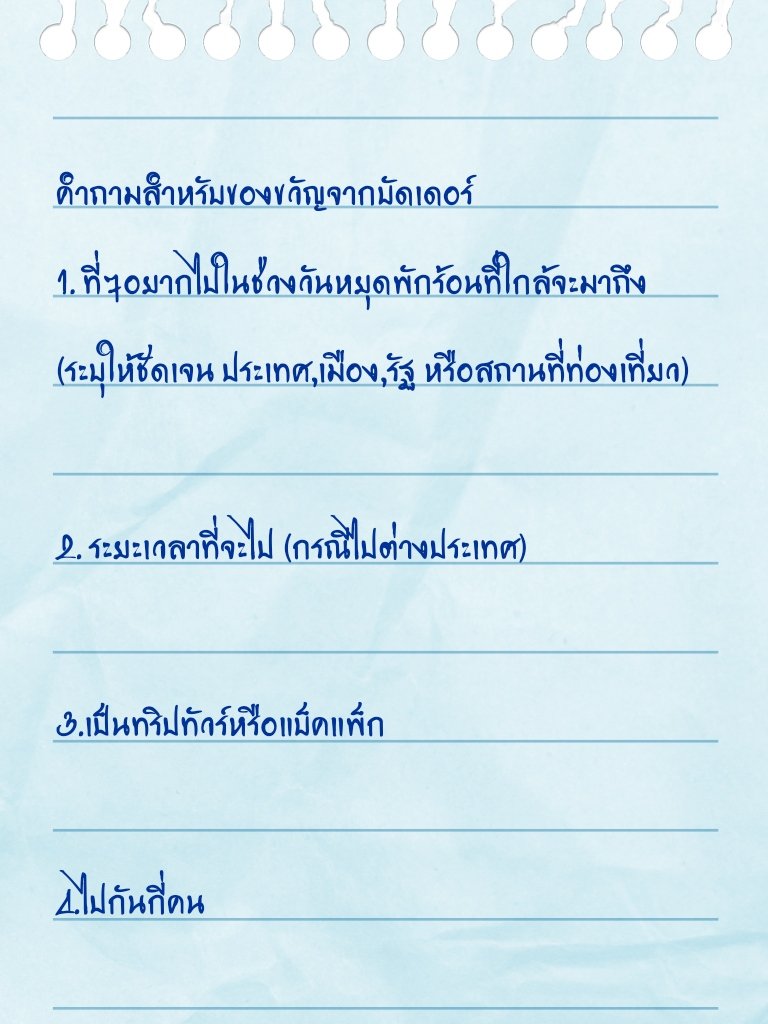 คำถามสำหรับของขวัญจากบัดเดอร์
1. ที่ๆอยากไปในช่วงวันหยุดพักร้อนที่ใกล้จะมาถึง
(ระบุให้ชัดเจน ประเทศ,เมือง,รัฐ หรือสถานที่ท่องเที่ยว)
2. ระยะเวลาที่จะไป (กรณีไปต่างประเทศ)
3.เป็นทริปทัวร์หรือแบ็คแพ็ก
4.ไปกันกี่คน